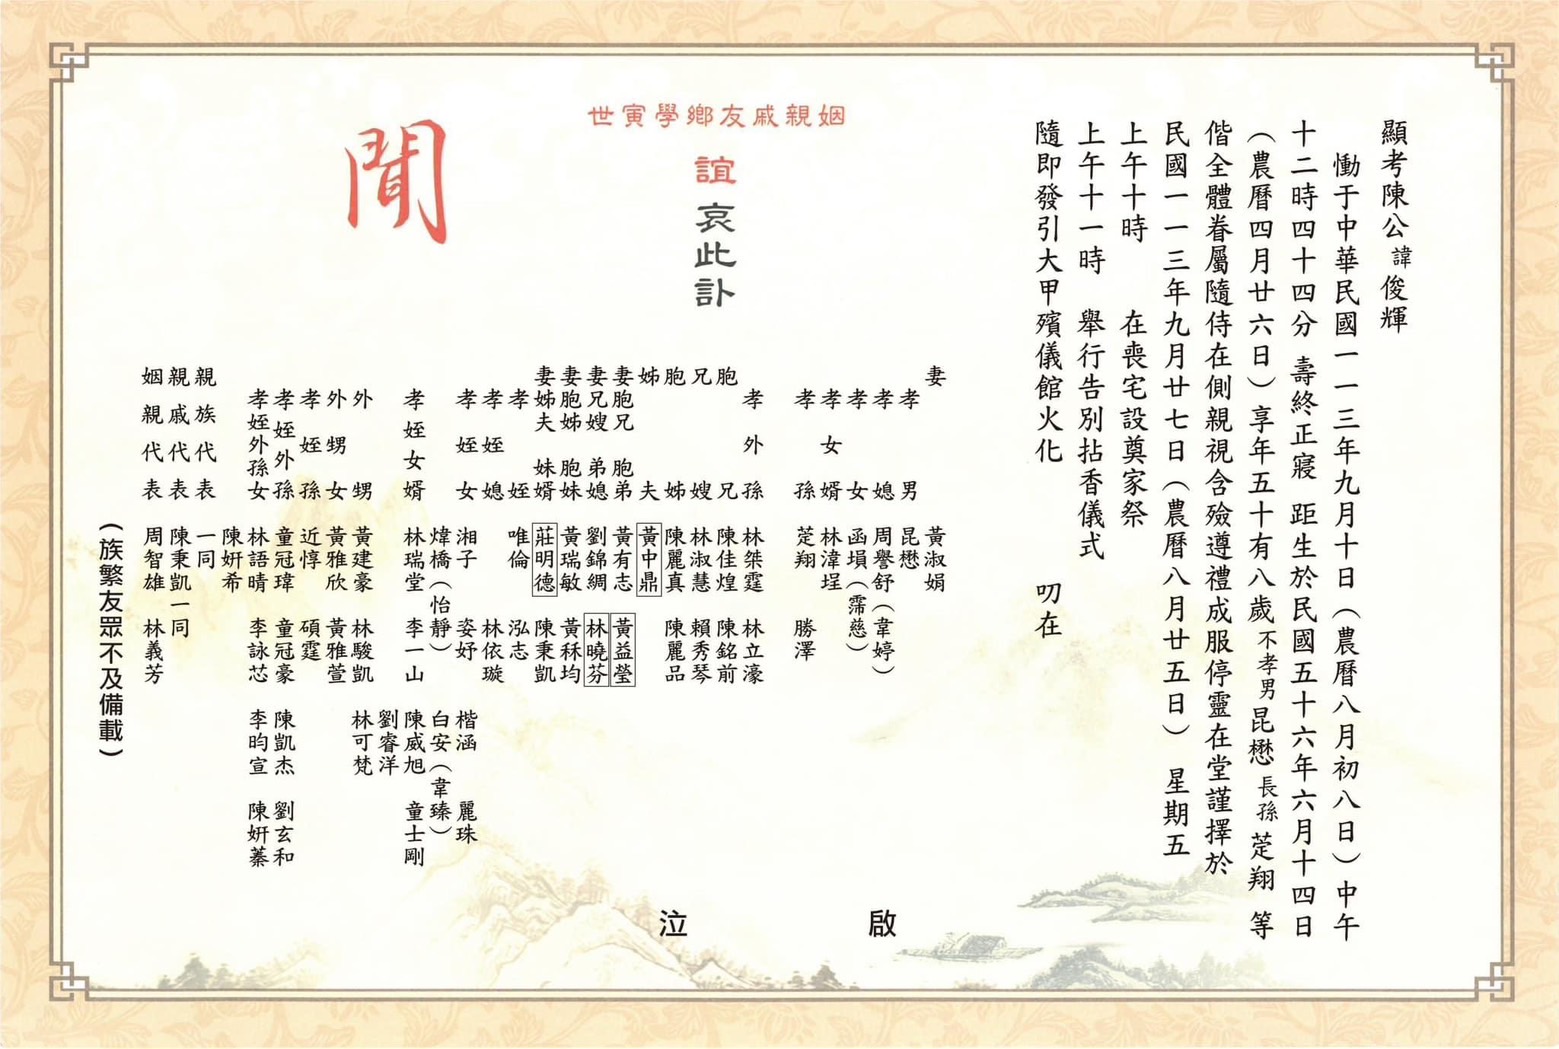 顯考陳公諱俊輝
慟于中華民國一一三年九月十日（農曆八月初八日）中午
十二時四十四分 壽終正寢 距生於民國五十六年六月十四日
（農曆四月廿六日）享年五十有八歲 不孝男 昆懋 長孫 萣翔 等
偕全體眷屬隨侍在側親視含殮遵禮成服停靈在堂謹擇於
民國一一三年九月廿七日（農曆八月廿五日） 星期五
上午十時 在喪宅設奠家祭
上午十一時 舉行告別拈香儀式
隨即發引大甲殯儀館火化 叨在
姻親戚友鄉學寅世
誼哀此訃
聞
妻 黃淑娟
孝男 昆懋
孝媳 周譽舒（韋婷）
孝女 函塤（霈慈）
孝女婿 林湋埕
孝孫 萣翔 勝澤
孝外孫 林桀霆 林立濠
胞兄 陳佳煌 陳銘前
兄嫂 林淑慧 賴秀琴
胞姊 陳麗真 陳麗品
姊夫 黃中鼎
妻胞兄 胞弟 黃有志 黃益瑩
妻兄嫂 弟媳 劉錦綢 林曉芬
妻胞姊 胞妹 黃瑞敏 黃秝均
妻姊夫 妹婿 莊明德 陳秉凱
孝姪 唯倫 泓志
孝姪媳 林依璇
孝姪女 湘子 姿妤 楷涵 麗珠
煒橋（怡靜） 白安（韋臻）
孝姪女婿 林瑞堂 李一山 陳威旭 童士剛
劉睿洋
外甥 黃建豪 林駿凱 林可梵
外甥女 黃雅欣 黃雅萱
孝姪孫 近惇 碩霆
孝姪外孫 童冠瑋 童冠豪 陳凱杰 劉玄和
孝姪外孫女 林語晴 李詠芯 李昀宣 陳妍蓁
陳妍希
親族代表 一同
親戚代表 陳秉凱一同
姻親代表 周智雄 林義芳
（族繁友眾不及備載）
泣啟